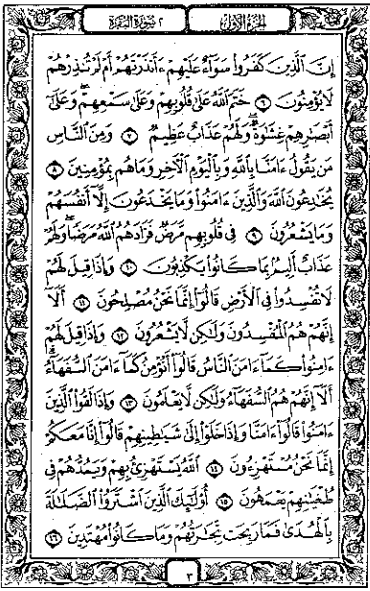 الجزء الأول ٢ سورة البقرة
إِنَّ ٱلَّذِينَ كَفَرُوا۟ سَوَآءٌ عَلَيْهِمْ ءَأَنذَرْتَهُمْ أَمْ لَمْ تُنذِرْهُمْ
لَا يُؤْمِنُونَ ٦ خَتَمَ ٱللَّهُ عَلَىٰ قُلُوبِهِمْ وَعَلَىٰ سَمْعِهِمْ ۖ وَعَلَىٰٓ
أَبْصَٰرِهِمْ غِشَٰوَةٌ ۖ وَلَهُمْ عَذَابٌ عَظِيمٌ ٧ وَمِنَ ٱلنَّاسِ
مَن يَقُولُ ءَامَنَّا بِٱللَّهِ وَبِٱلْيَوْمِ ٱلْءَاخِرِ وَمَا هُم بِمُؤْمِنِينَ ٨
يُخَٰدِعُونَ ٱللَّهَ وَٱلَّذِينَ ءَامَنُوا۟ وَمَا يَخْدَعُونَ إِلَّآ أَنفُسَهُمْ
وَمَا يَشْعُرُونَ ٩ فِى قُلُوبِهِم مَّرَضٌ فَزَادَهُمُ ٱللَّهُ مَرَضًا ۖ وَلَهُمْ
عَذَابٌ أَلِيمٌۢ بِمَا كَانُوا۟ يَكْذِبُونَ ١٠ وَإِذَا قِيلَ لَهُمْ
لَا تُفْسِدُوا۟ فِى ٱلْأَرْضِ قَالُوٓا۟ إِنَّمَا نَحْنُ مُصْلِحُونَ ١١ أَلَآ
إِنَّهُمْ هُمُ ٱلْمُفْسِدُونَ وَلَٰكِن لَّا يَشْعُرُونَ ١٢ وَإِذَا قِيلَ لَهُمْ
ءَامِنُوا۟ كَمَآ ءَامَنَ ٱلنَّاسُ قَالُوٓا۟ أَنُؤْمِنُ كَمَآ ءَامَنَ ٱلسُّفَهَآءُ ۗ
أَلَآ إِنَّهُمْ هُمُ ٱلسُّفَهَآءُ وَلَٰكِن لَّا يَعْلَمُونَ ١٣ وَإِذَا لَقُوا۟ ٱلَّذِينَ
ءَامَنُوا۟ قَالُوٓا۟ ءَامَنَّا وَإِذَا خَلَوْا۟ إِلَىٰ شَيَٰطِينِهِمْ قَالُوٓا۟ إِنَّا مَعَكُمْ
إِنَّمَا نَحْنُ مُسْتَهْزِءُونَ ١٤ ٱللَّهُ يَسْتَهْزِئُ بِهِمْ وَيَمُدُّهُمْ فِى
طُغْيَٰنِهِمْ يَعْمَهُونَ ١٥ أُو۟لَٰٓئِكَ ٱلَّذِينَ ٱشْتَرَوُا۟ ٱلضَّلَٰلَةَ
بِٱلْهُدَىٰ فَمَا رَبِحَت تِّجَٰرَتُهُمْ وَمَا كَانُوا۟ مُهْتَدِينَ ١٦
٣